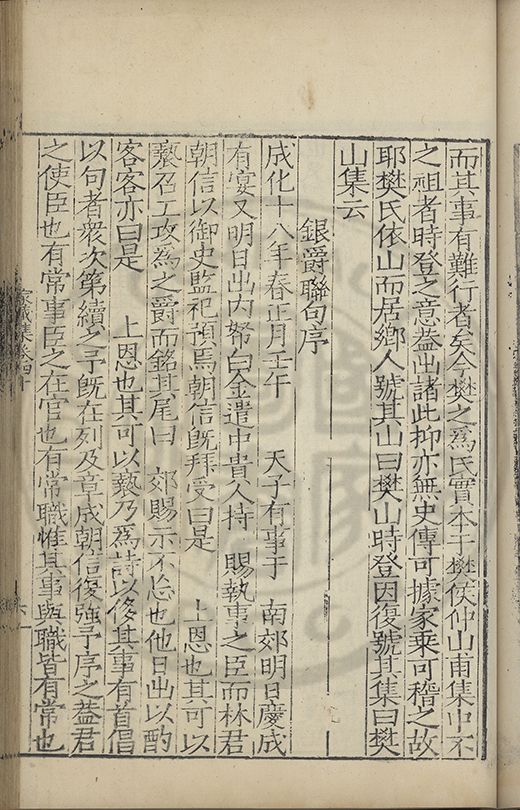 而其事有難行者矣今樊之爲氏實本于樊侯仲山甫集中不
之祖者時登之意葢出諸此抑亦無史傳可據家乗可稽之故
耶樊氏依山而居鄉人號其山曰樊山時登因復號其集曰樊
山集云
銀爵聯句序
成化十八年春正月壬午　天子有事于　南郊明日慶成
有宴又明日出内帑白金遣中貴人持　賜執事之臣而林君
朝信以御史監祀預焉朝信旣拜受曰是　上恩也其可以
褻召工攻爲之爵而銘其尾曰　郊賜示不忘也他日出以酌
客客亦曰是　上恩也其可以褻乃爲詩以侈其事有首倡
以句者衆次第續之予旣在列及章成朝信復強予序之葢君
之使臣也有常事臣之在官也有常職惟其事與職皆有常也
家藏集卷四十